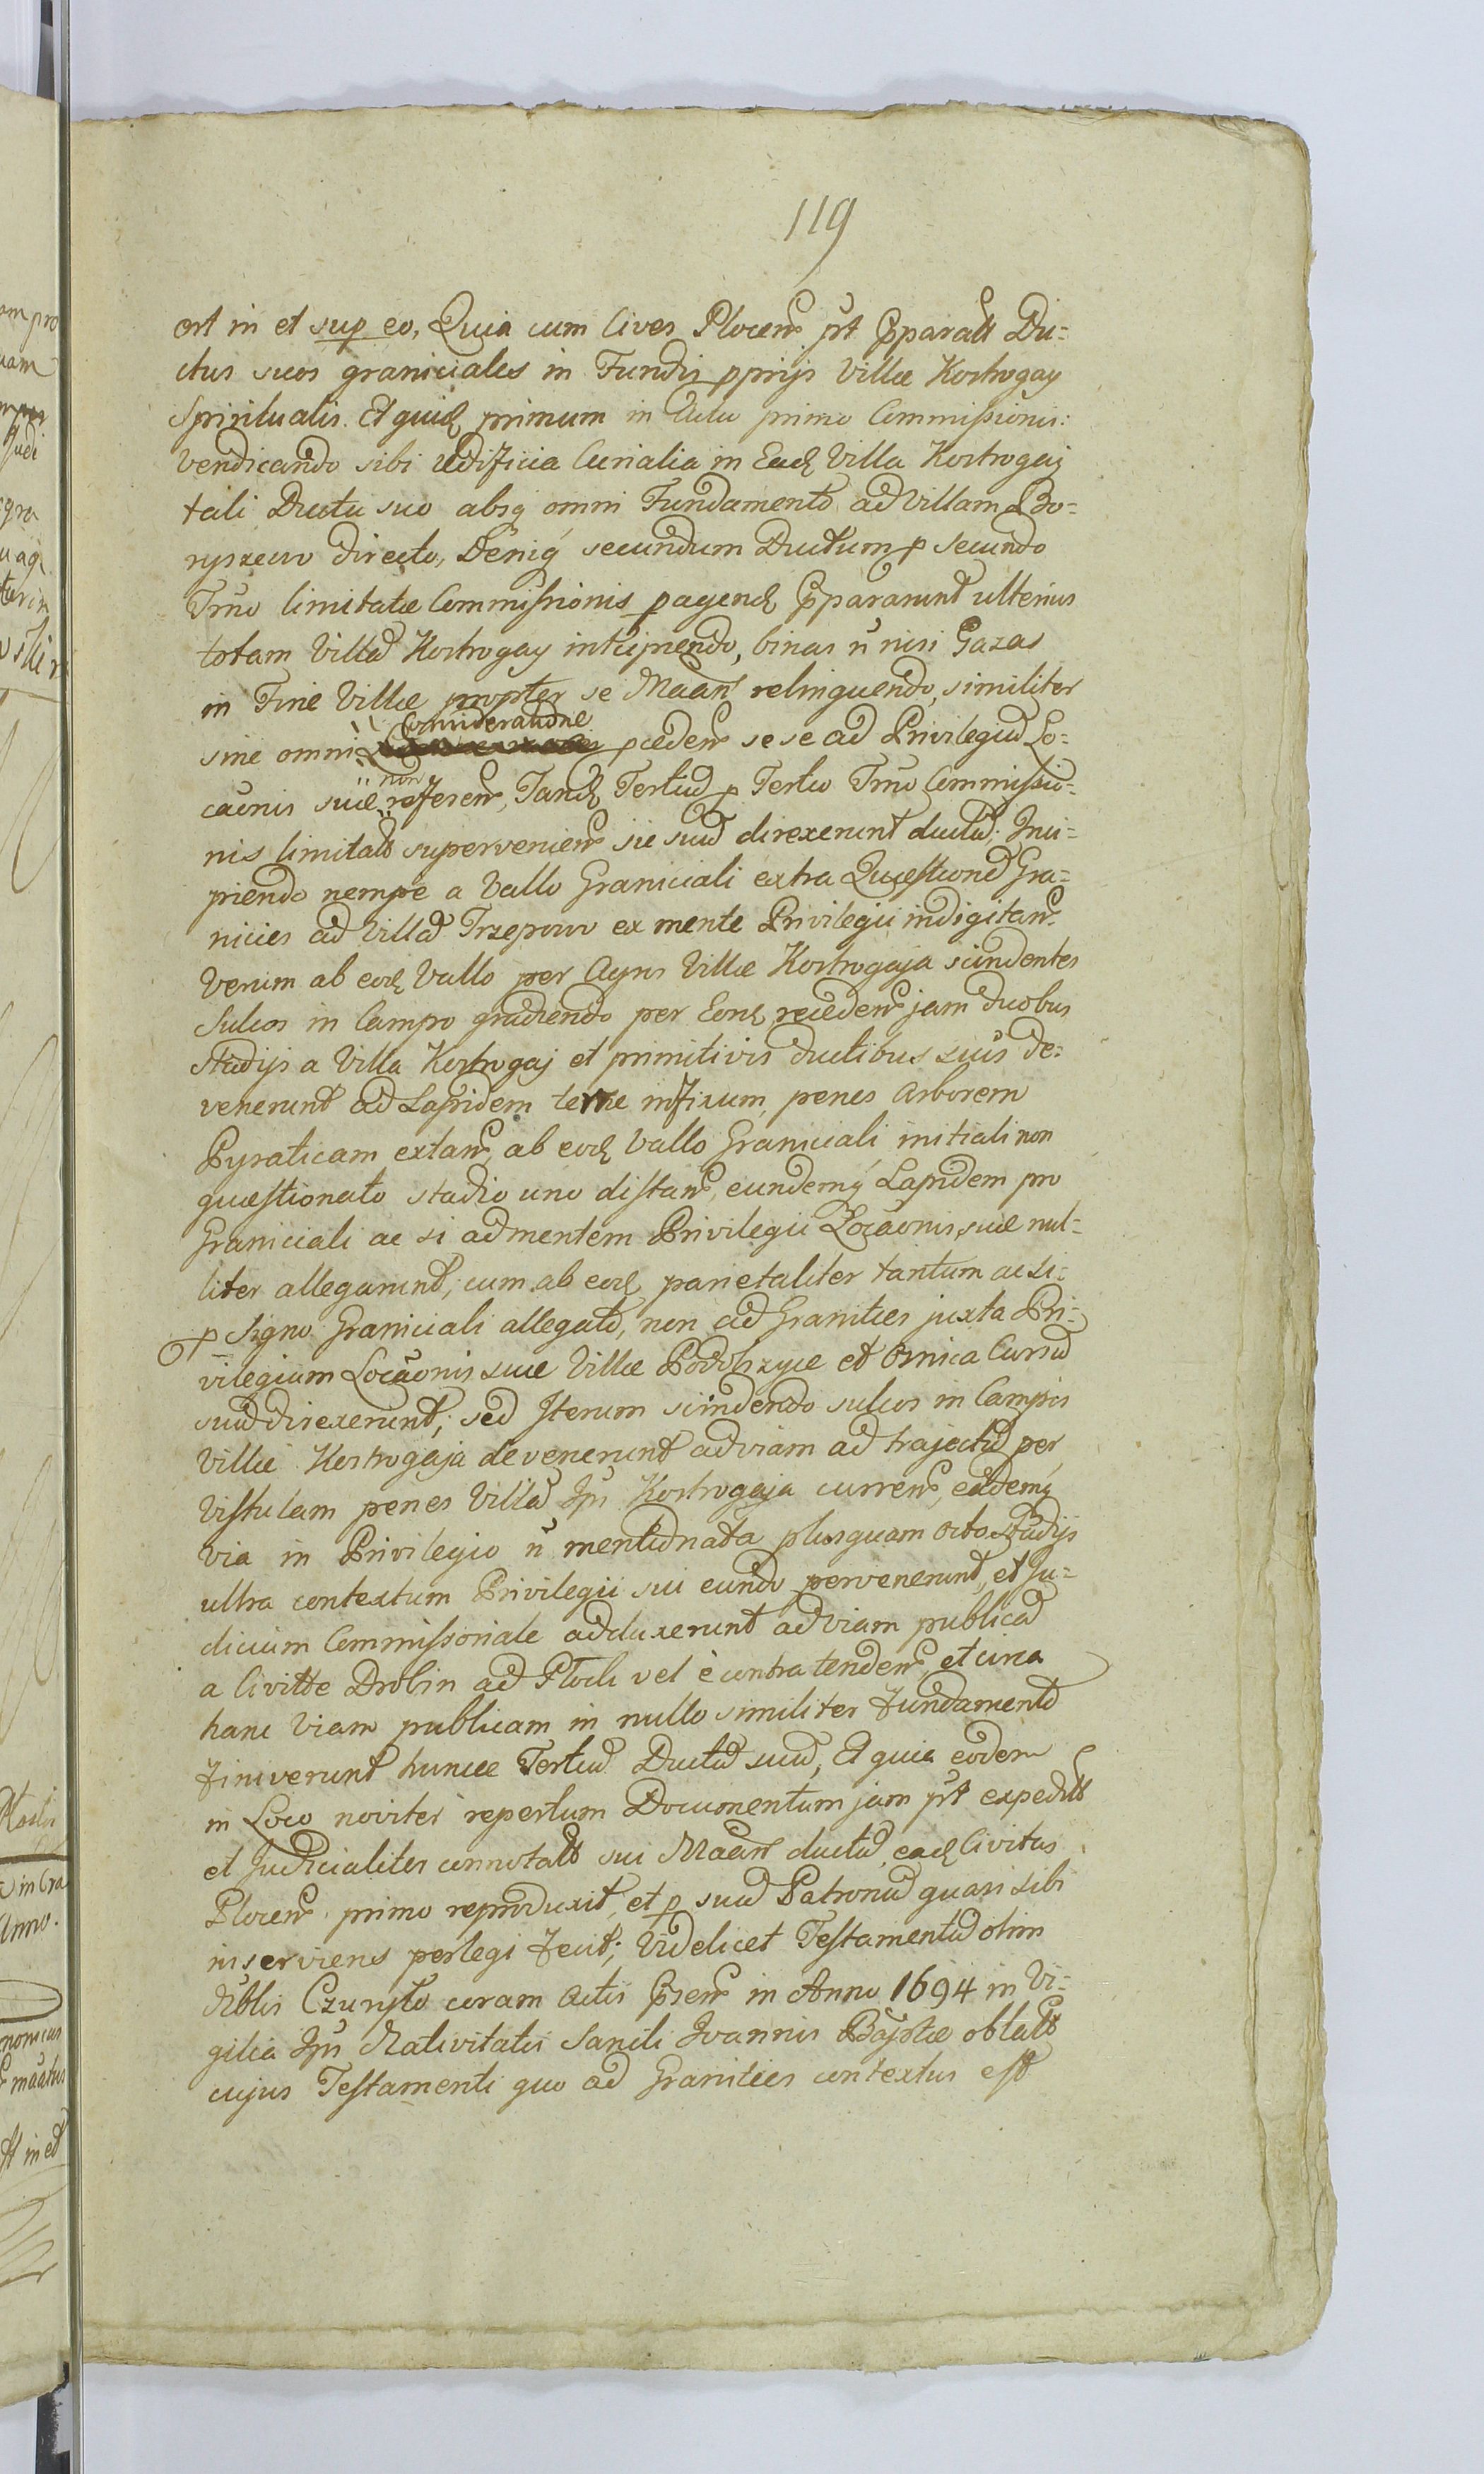 119
est in et sup eo, Quia cum Cives Plocen̄ pt Ppara͠tt Du-
ctus suos graniciales in Fundis pprijs Villæ Kostrogay
Spiritualis. Et quid primum in Actu primo Commissionis:
vendicando sibi ædificia Curialia in Ead Villa Kostrogaj
tali Ductu suo absq omni Fundamento ad Villam Bo-
ryszewo directo, Deniq secundum Ductum p secundo
Trno limitatæ Commissionis pagend Ppararunt ulterius
totam Villā Kostrogay incipiendo, binas ñ nisi Gazas
in Fine Villæ propter se Maan relinquendo, similiter
sine omni Consideratione pceden̄ se se ad Privilegiū Lo-
caōnis suæ non referen̄, Tand Tertiū p Tertio Trno Commissio-
nis limitato supervenien̄ sic suū direxerunt ductū. Inci-
piendo nempe a Vallo Graniciali extra Quæstionē Gra-
nicies ad Villā Trzepowo ex mente Privilegii indigitan̄
Verum ab eod Vallo per Agros Villæ Kostrogaja scindentes
Sulcos in Campo gradiendo per Eosd receden̄ jam duobus
stadijs a Villa Kostrogaj et primitivis ductibus suis de-
venerunt ad Lapidem terræ infixum, penes Arborem
Pyraticam extan̄, ab eod Vallo Graniciali initiali non
quæstionato stadio uno distan̄, eundemq Lapidem pro
Graniciali ac si ad mentem Privilegii Locaōnis suæ nul-
liter allegarunt, cum ab eod parietaliter tantum ac si
p Signo Graniciali allegato, non ad Granities juxta Pri-
vilegium Locaōnis suæ Villæ Podolszyce et Ornica Cursū
suū direxerunt; sed Iterum scindendo sulcos in Campis
Villæ Kostrogaja devenerunt ad viam ad trajectū per
Vistulam penes Villā Ips Kostrogaja curren̄, eademq
via in Privilegio ñ mentionata plusquam octo Stadijs
ultra contextum Privilegii sui eundo pervenerunt, et Ju-
dicium Commissoriale adduxerunt ad viam publicā
a Civitte Drobin ad Plock vel è contra tenden̄, et circa
hanc Viam publicam in nullo similiter Fundamento
finiverunt huncce Tertiū Ductū suū, Et quia eodem
in Loco noviter repertum Documentum jam pt expeditt
et Judicialiter connotatt sui Maan ductū, ead Civitas
Plocen̄ primo reproduxit, et p suū Patronū quasi sibi
inserviens perlegi fecit; Videlicet Testamentū olim
Nblis Czuryło coram Actis Psen̄ in Anno 1694 in Vi-
gilia Ips Nativitatis Sancti Joannis Baptæ oblatt
cujus Testamenti quo ad Granities contextus est